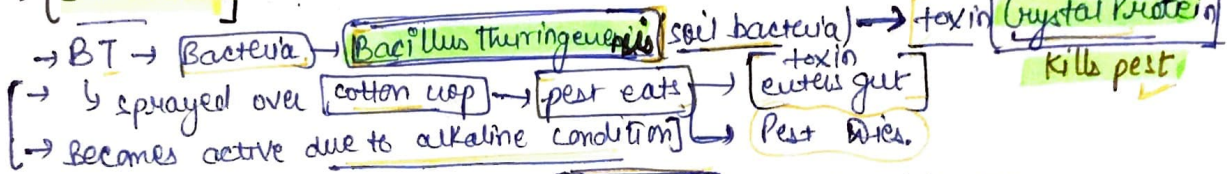 → BT → Bacteria → Bacillus thuringenensis (soil bacteria) → toxin (Crystal Protein)
Kills pest
↳ sprayed over cotton crop → pest eats → toxin enters gut
→ Becomes active due to alkaline condition] → Pest Dies.